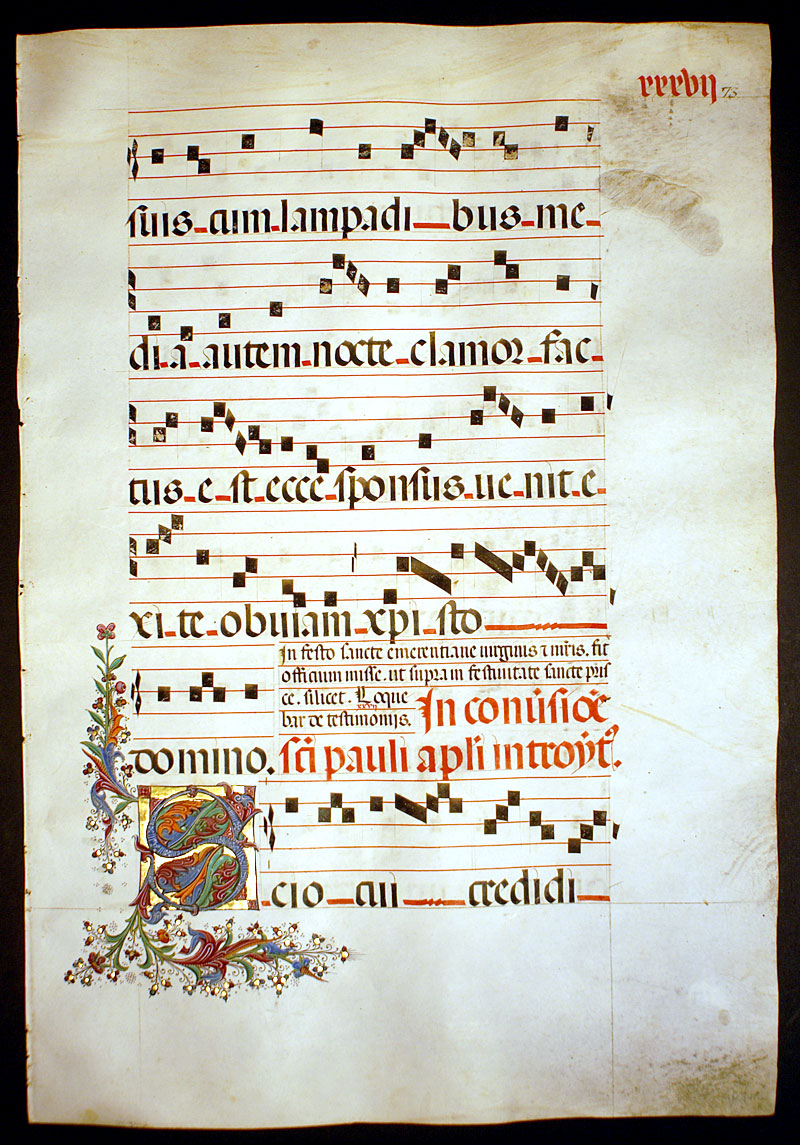 xxxvij 73
suis cum lampadi bus me
di a autem nocte clamor fac
tus e st ecce sponsus ue nit e
xi te obuiam xpi sto
In festo sancte emerentiane uirginis ⁊ mris. fit
officium misse. ut supra in festiuitate sancte pris
ce. silicet. Loque
xxvij
bar de testimonijs. In conuersioe
domino. sci pauli apli introyt.
Scio cui credidi